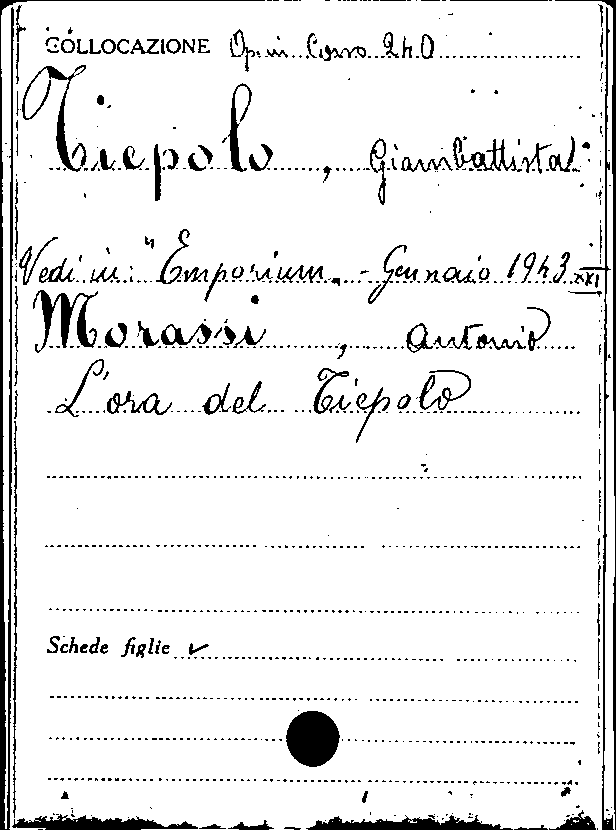 COLLOCAZIONE Op. in Corso 240
Tiepolo, Giambattista
Vedi in: "Emporium„ - Gennaio 1943 XXI
Morassi, Antonio
L'ora del Tiepolo
Schede figlie ✓